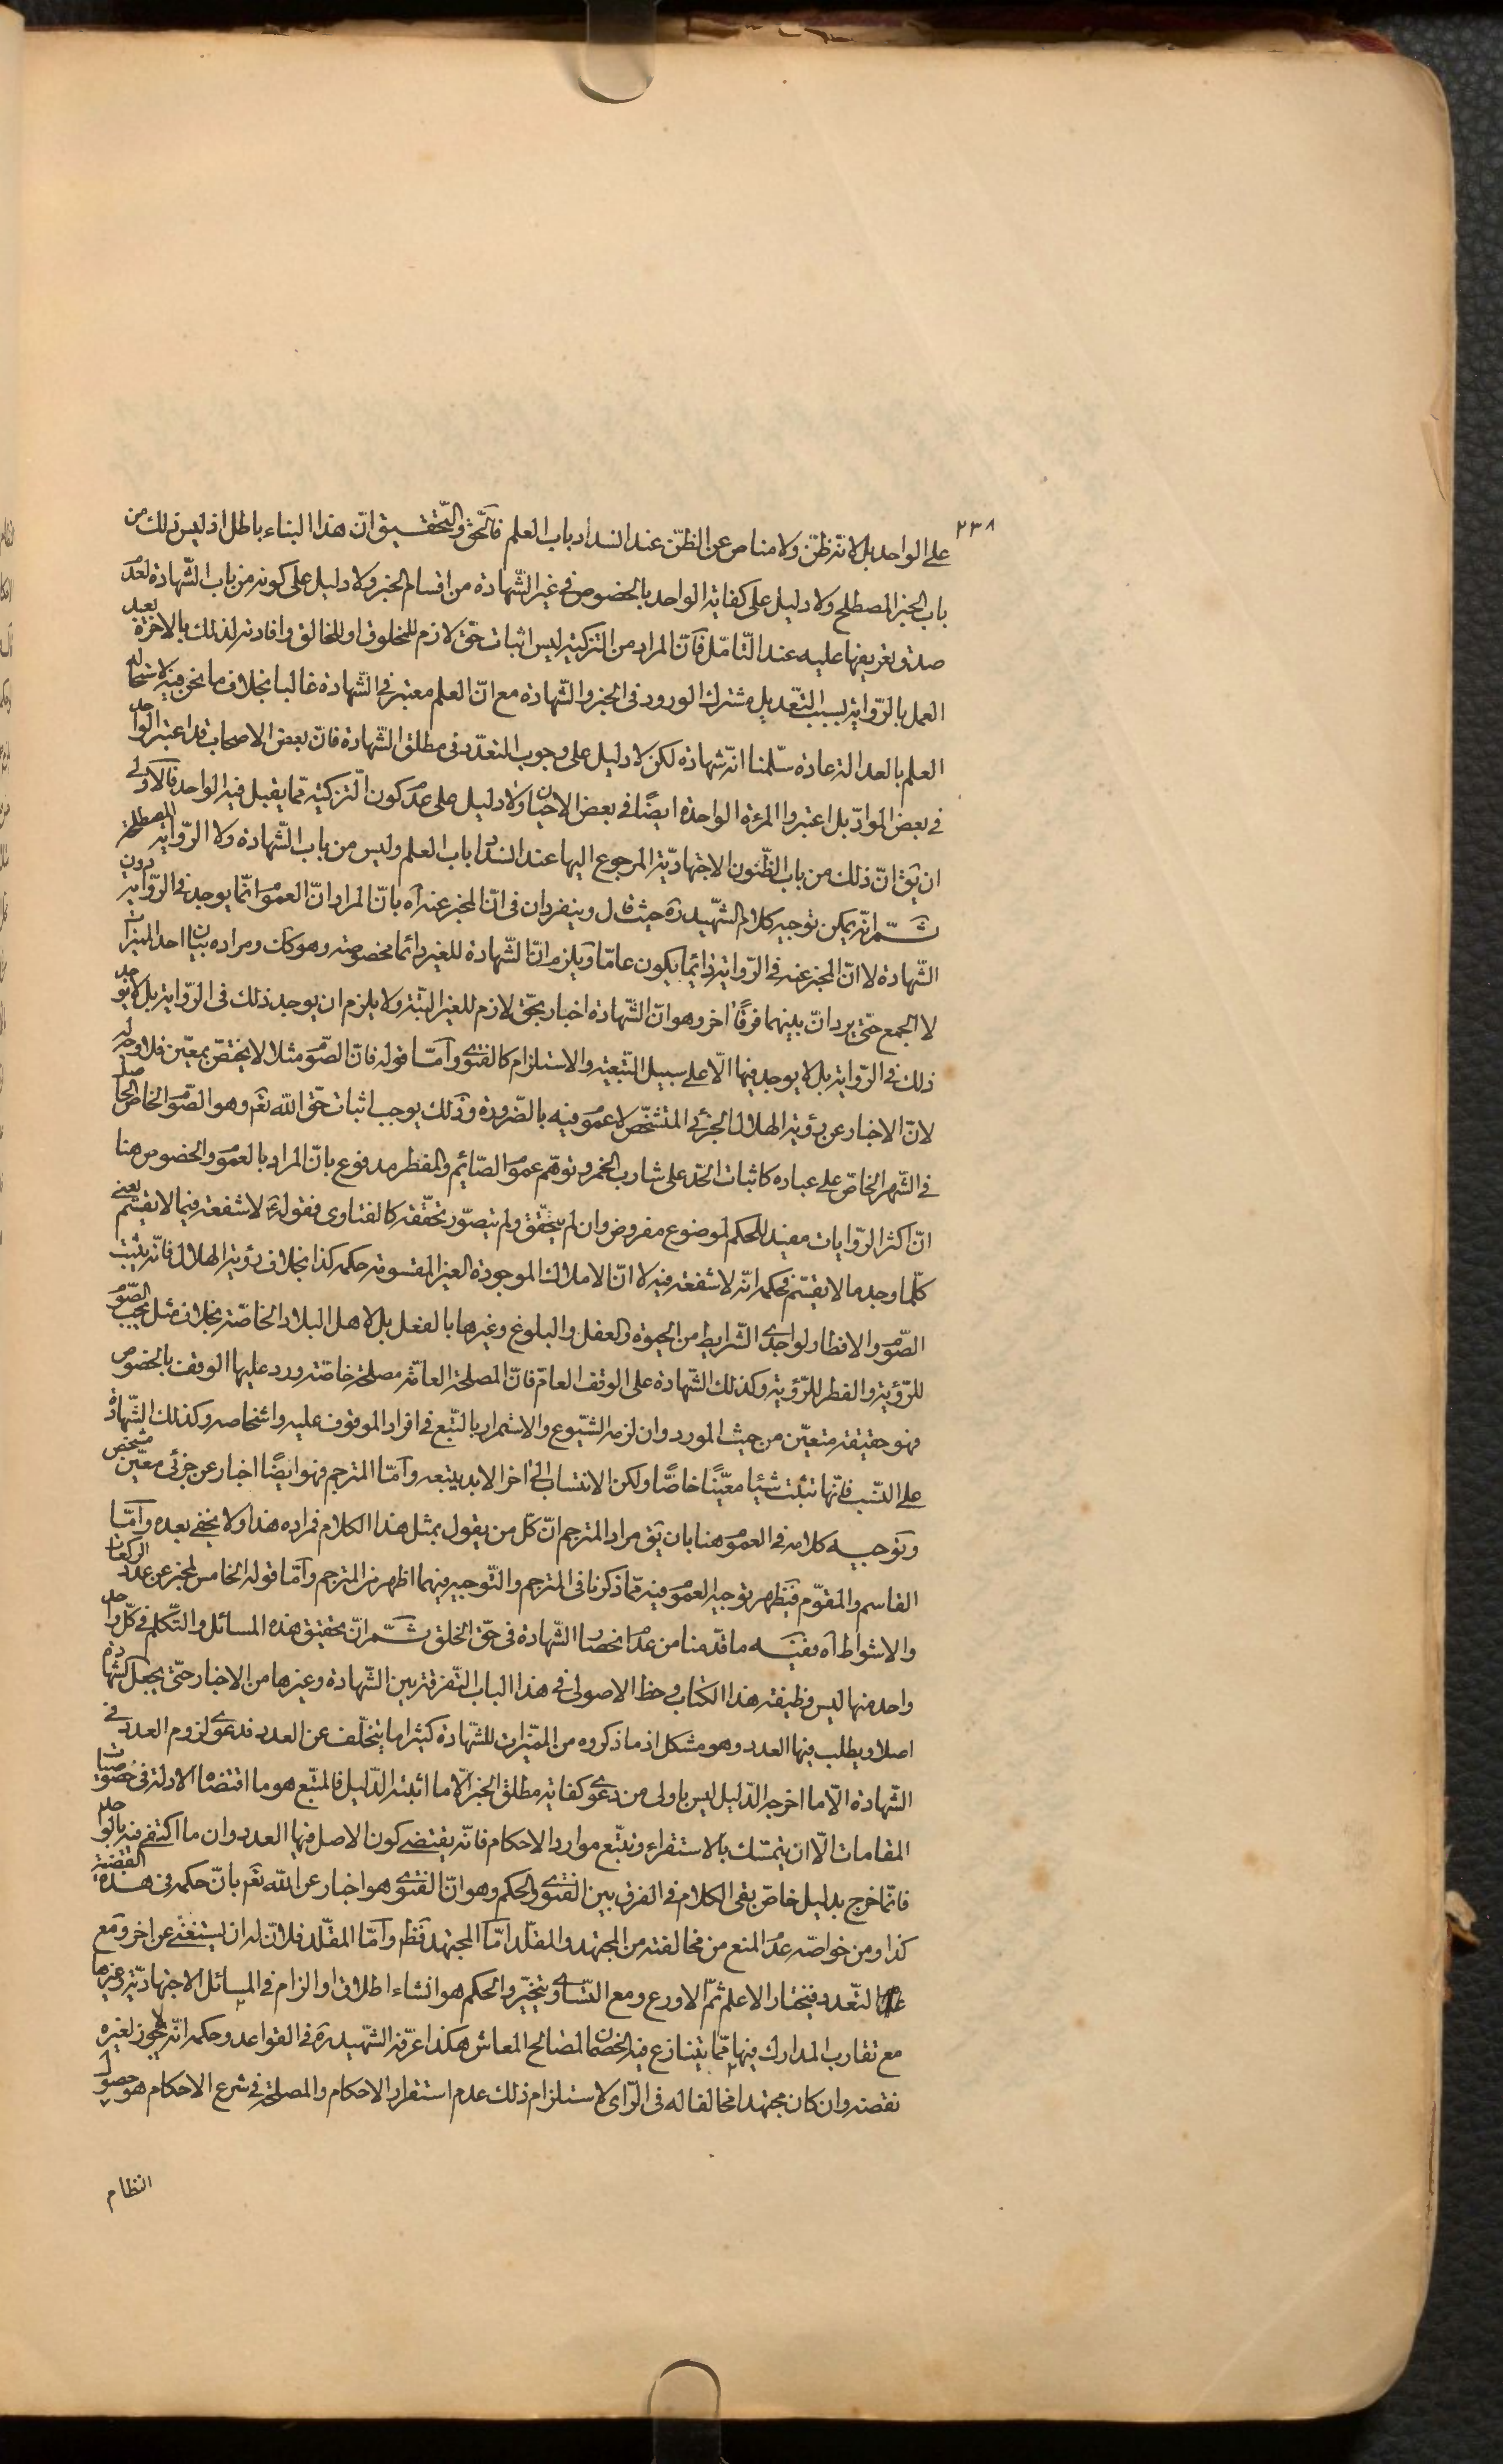 ٢٣٨
على الواحد بل لانه ظنّ ولا مناص عن الظنّ عند انسداد باب العلم فالحقّ والتّحقيق انّ هذا البناء باطل اذ ليس ذلك من
باب الخبر المصطلح ولا دليل على كفاية الواحد بالخصوص في غير الشّهادة من اقسام الخبر ولا دليل على كونه من باب الشّهادة لعدم
صدق تعريفها عليه عند التّامّل فانّ المراد من التزكية ليس اثبات حقّ لازم للمخلوق او للخالق وافادته لذلك بالاخرة بعد
العمل بالرّواية بسبب التّعديل مشترك الورود في الخبر والشّهادة مع انّ العلم معتبر في الشّهادة غالبا بخلاف ما نحن فيه لاستحالة
العلم بالعدالة عادة سلّمنا انّه شهادة لكن لا دليل على وجوب التعدّد في مطلق الشّهادة فانّ بعض الاصحاب قد اعتبر الواحد
في بعض الموادّ بل اعتبروا المرءة الواحدة ايضًا في بعض الاحيان ولا دليل على عدم كون التزكية ممّا يقبل فيه الواحد فالاولى
ان يقَ انّ ذلك من باب الظّنون الاجتهاديّة المرجوع اليها عند انسداد باب العلم وليس من باب الشّهادة ولا الرّواية المصطلحة
ثمّ انّه يمكن توجيه كلام الشّهيد ره حيث قال وينفردان في انّ المخبر عنه آه بانّ المراد انّ العموم انّما يوجد في الرّواية دون
الشّهادة لا انّ المخبر عنه في الرّواية دائما يكون عامّا ويلزم انّ الشّهادة للغير دائما مخصوصة وهو كك ومراده بيان احد الميزات
لا الجمع حتّى يرد انّ بينهما فرقًا اخر وهو انّ الشّهادة اخبار بحقّ لازم للغير البتّة ولا يلزم ان يوجد ذلك في الرّواية بل لا يوجد
ذلك في الرّواية بل لا يوجد فيها الّا على سبيل التّبعيّة والاستلزام كالفتوى وامّا قوله فانّ الصّوم مثلا لا يختصّ بمعيّن فلا وجه له
لانّ الاخبار عن رؤية الهلال الجزئي المتشخّص لا عموم فيه بالضّرورة وذلك يوجب اثبات حقّ الله تعَم وهو الصّوم الخاصّ الحاصل
في الشّهر الخاصّ على عباده كاثبات الحّد على شارب الخمر وتوهّم عموم الصّائم والمفطر مدفوع بانّ المراد بالعموم والخصوص هنا
انّ اكثر الرّوايات مفيد للحكم لموضوع مفروض وان لم يتحقّق ولم يتصوّر تحقّقه كالفتاوى فقوله لا شفعة فيما لا يقسّم يعني
كلّما وجد ما لا يقسّم فحكمه انّه لا شفعة فيه لا انّ الاملاك الموجودة الغير المقسومة حكمه كذا بخلاف رؤية الهلال فانّه يثبت
الصّوم والافطار لواجدي الشّرايط من الحيوة والعقل والبلوغ وغيرها بالفعل بل لاهل البلاد الخاصّة بخلاف مثل يجب الصّوم
للرّؤية والفطر للرّؤية وكذلك الشّهادة على الوقف العامّ فانّ المصلحة العامّة مصلحة خاصّة ورد عليها الوقف بالخصوص
فهو حقيقة متعيّن من حيث المورد وان لزمه الشّيوع والاستمرار بالتّبع في افراد الموقوف عليه واشخاصه وكذلك الشّهادة
على النّسب فانّها تثبت شيئا معيّنًا خاصًّا ولكن الانتساب الى اخر الابد يتبعه وامّا المترجم فهو ايضًا اخبار عن جزئي معيّن مشخّص
وتوجيه كلامه في العموم هنا بان يقَ مراد المترجم انّ كلّ من يقول بمثل هذا الكلام فمراده هذا ولا يخفى بعده وامّا
القاسم والمقوّم فيظهر توجيه العموم فيه ممّا ذكرنا في المترجم والتّوجيه فيهما اظهر من المترجم وامّا قوله الخامس المخبر عن عدد الركعات
والاشواط آه ففيه ما قدّمنا من عدم انحصار الشّهادة في حقّ الخلق ثمّ انّ تحقيق هذه المسائل والتّكلم في كلّ واحد
واحد منها ليس وظيفة هذا الكتاب وحظ الاصولي في هذا الباب التّفرقة بين الشّهادة وغيرها من الاخبار حتّى يجعل كشهادة
اصلا ويطلب فيها العدد وهو مشكل اذ ما ذكروه من المميّزات للشّهادة كثيرا ما يتخلّف عن العدد فدعوى لزوم العدد في
الشّهادة الّا ما اخرجه الدّليل ليس باولى من دعوى كفاية مطلق الخبر الّا ما اثبته الدّليل فالمتّبع هو ما اقتضاه الادلة في خصوصيات
المقامات الّا ان يتمسّك بالاستقراء وتتبّع موارد الاحكام فانّه يقتضي كون الاصل فيها العدد وان ما اكتفى فيه بالواحد
فانّما خرج بدليل خاصّ بقي الكلام في الفرق بين الفتوى والحكم وهو انّ الفتوى هو اخبار عن الله تعَم بانّ حكمه في هذه القضيّة
كذا ومن خواصّه عدم المنع من مخالفته من المجتهد والمقلّد امّا المجتهد فظَ وامّا المقلّد فلانّ له ان يستفتي عن اخر ومع
التّعدد فيختار الاعلم ثمّ الاورع ومع التّساوي يتخيّر والحكم هو انشاء اطلاق او الزام في المسائل الاجتهاديّة وغيرها
مع تقارب المدارك فيها ممّا يتنازع فيه الخصمان لمصالح المعاش هكذا عرّفه الشّهيد ره في القواعد وحكمه انّه لا يجوز لغيره
نقضه وان كان مجتهدا مخالفا له في الرّاى لاستلزام ذلك عدم استقرار الاحكام والمصلحة في شرع الاحكام هو حصول
النظام